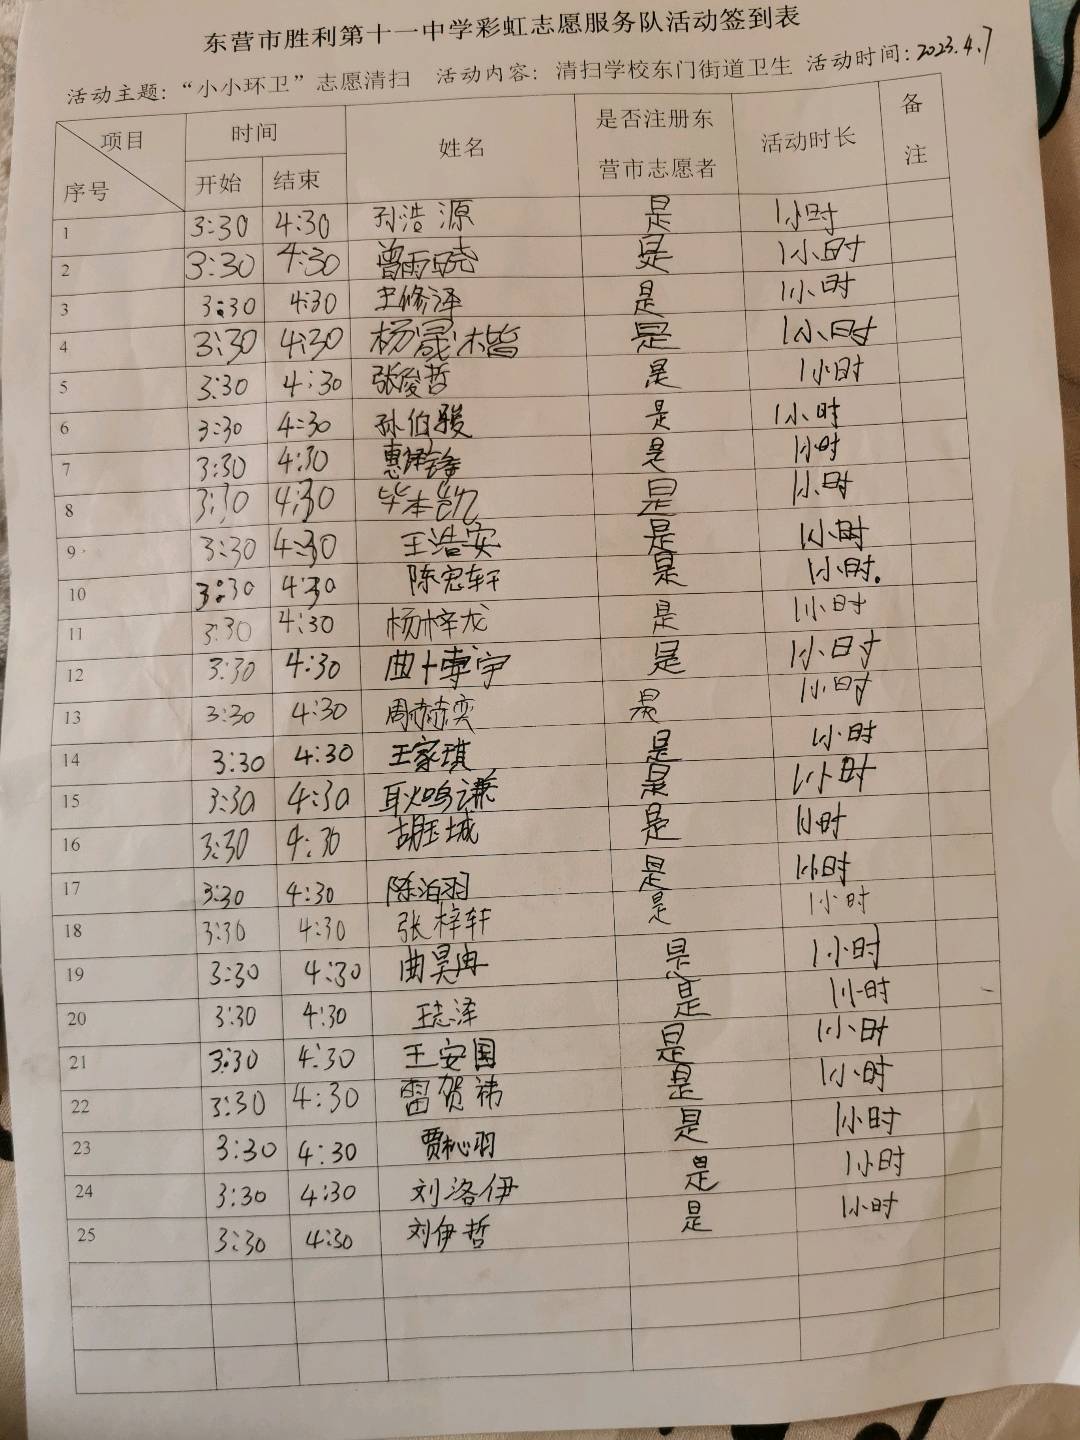 东营市胜利第十一中学彩虹志愿服务队活动签到表
活动主题：“小小环卫”志愿清扫 活动内容：清扫学校东门街道卫生 活动时间：2023.4.7
项目 序号 时间 开始 结束 姓名 是否注册东营市志愿者 活动时长 备注
1 3:30 4:30 孙浩源 是 1小时
2 3:30 4:30 曾雨晓 是 1小时
3 3:30 4:30 王修泽 是 1小时
4 3:30 4:30 杨晟楷 是 1小时
5 3:30 4:30 张俊哲 是 1小时
6 3:30 4:30 孙伯骏 是 1小时
7 3:30 4:30 惠锋 是 1小时
8 3:30 4:30 毕本凯 是 1小时
9 3:30 4:30 王浩安 是 1小时
10 3:30 4:30 陈宏轩 是 1小时.
11 3:30 4:30 杨梓龙 是 1小时
12 3:30 4:30 曲博宇 是 1小时
13 3:30 4:30 周赫奕 是 1小时
14 3:30 4:30 王家琪 是 1小时
15 3:30 4:30 耿鸣谦 是 1小时
16 3:30 4:30 胡玉城 是 1小时
17 3:30 4:30 陈泊羽 是 1小时
18 3:30 4:30 张梓轩 是 1小时
19 3:30 4:30 曲昊冉 是 1小时
20 3:30 4:30 王志泽 是 1小时
21 3:30 4:30 王安国 是 1小时
22 3:30 4:30 雷贺祎 是 1小时
23 3:30 4:30 贾杺羽 是 1小时
24 3:30 4:30 刘洛伊 是 1小时
25 3:30 4:30 刘伊哲 是 1小时